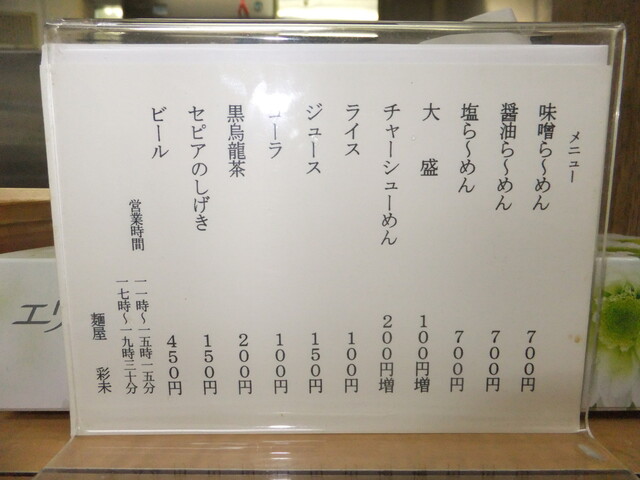 メニュー
味噌ら〜めん 700円
醤油ら〜めん 700円
塩ら〜めん 700円
大盛 100円増
チャーシューめん 200円増
ライス 100円
ジュース 150円
コーラ 100円
黒烏龍茶 200円
セピアのしげき 150円
ビール 450円
営業時間
一一時〜一五時一五分
一七時〜一九時三十分
麺屋 彩未
エリ